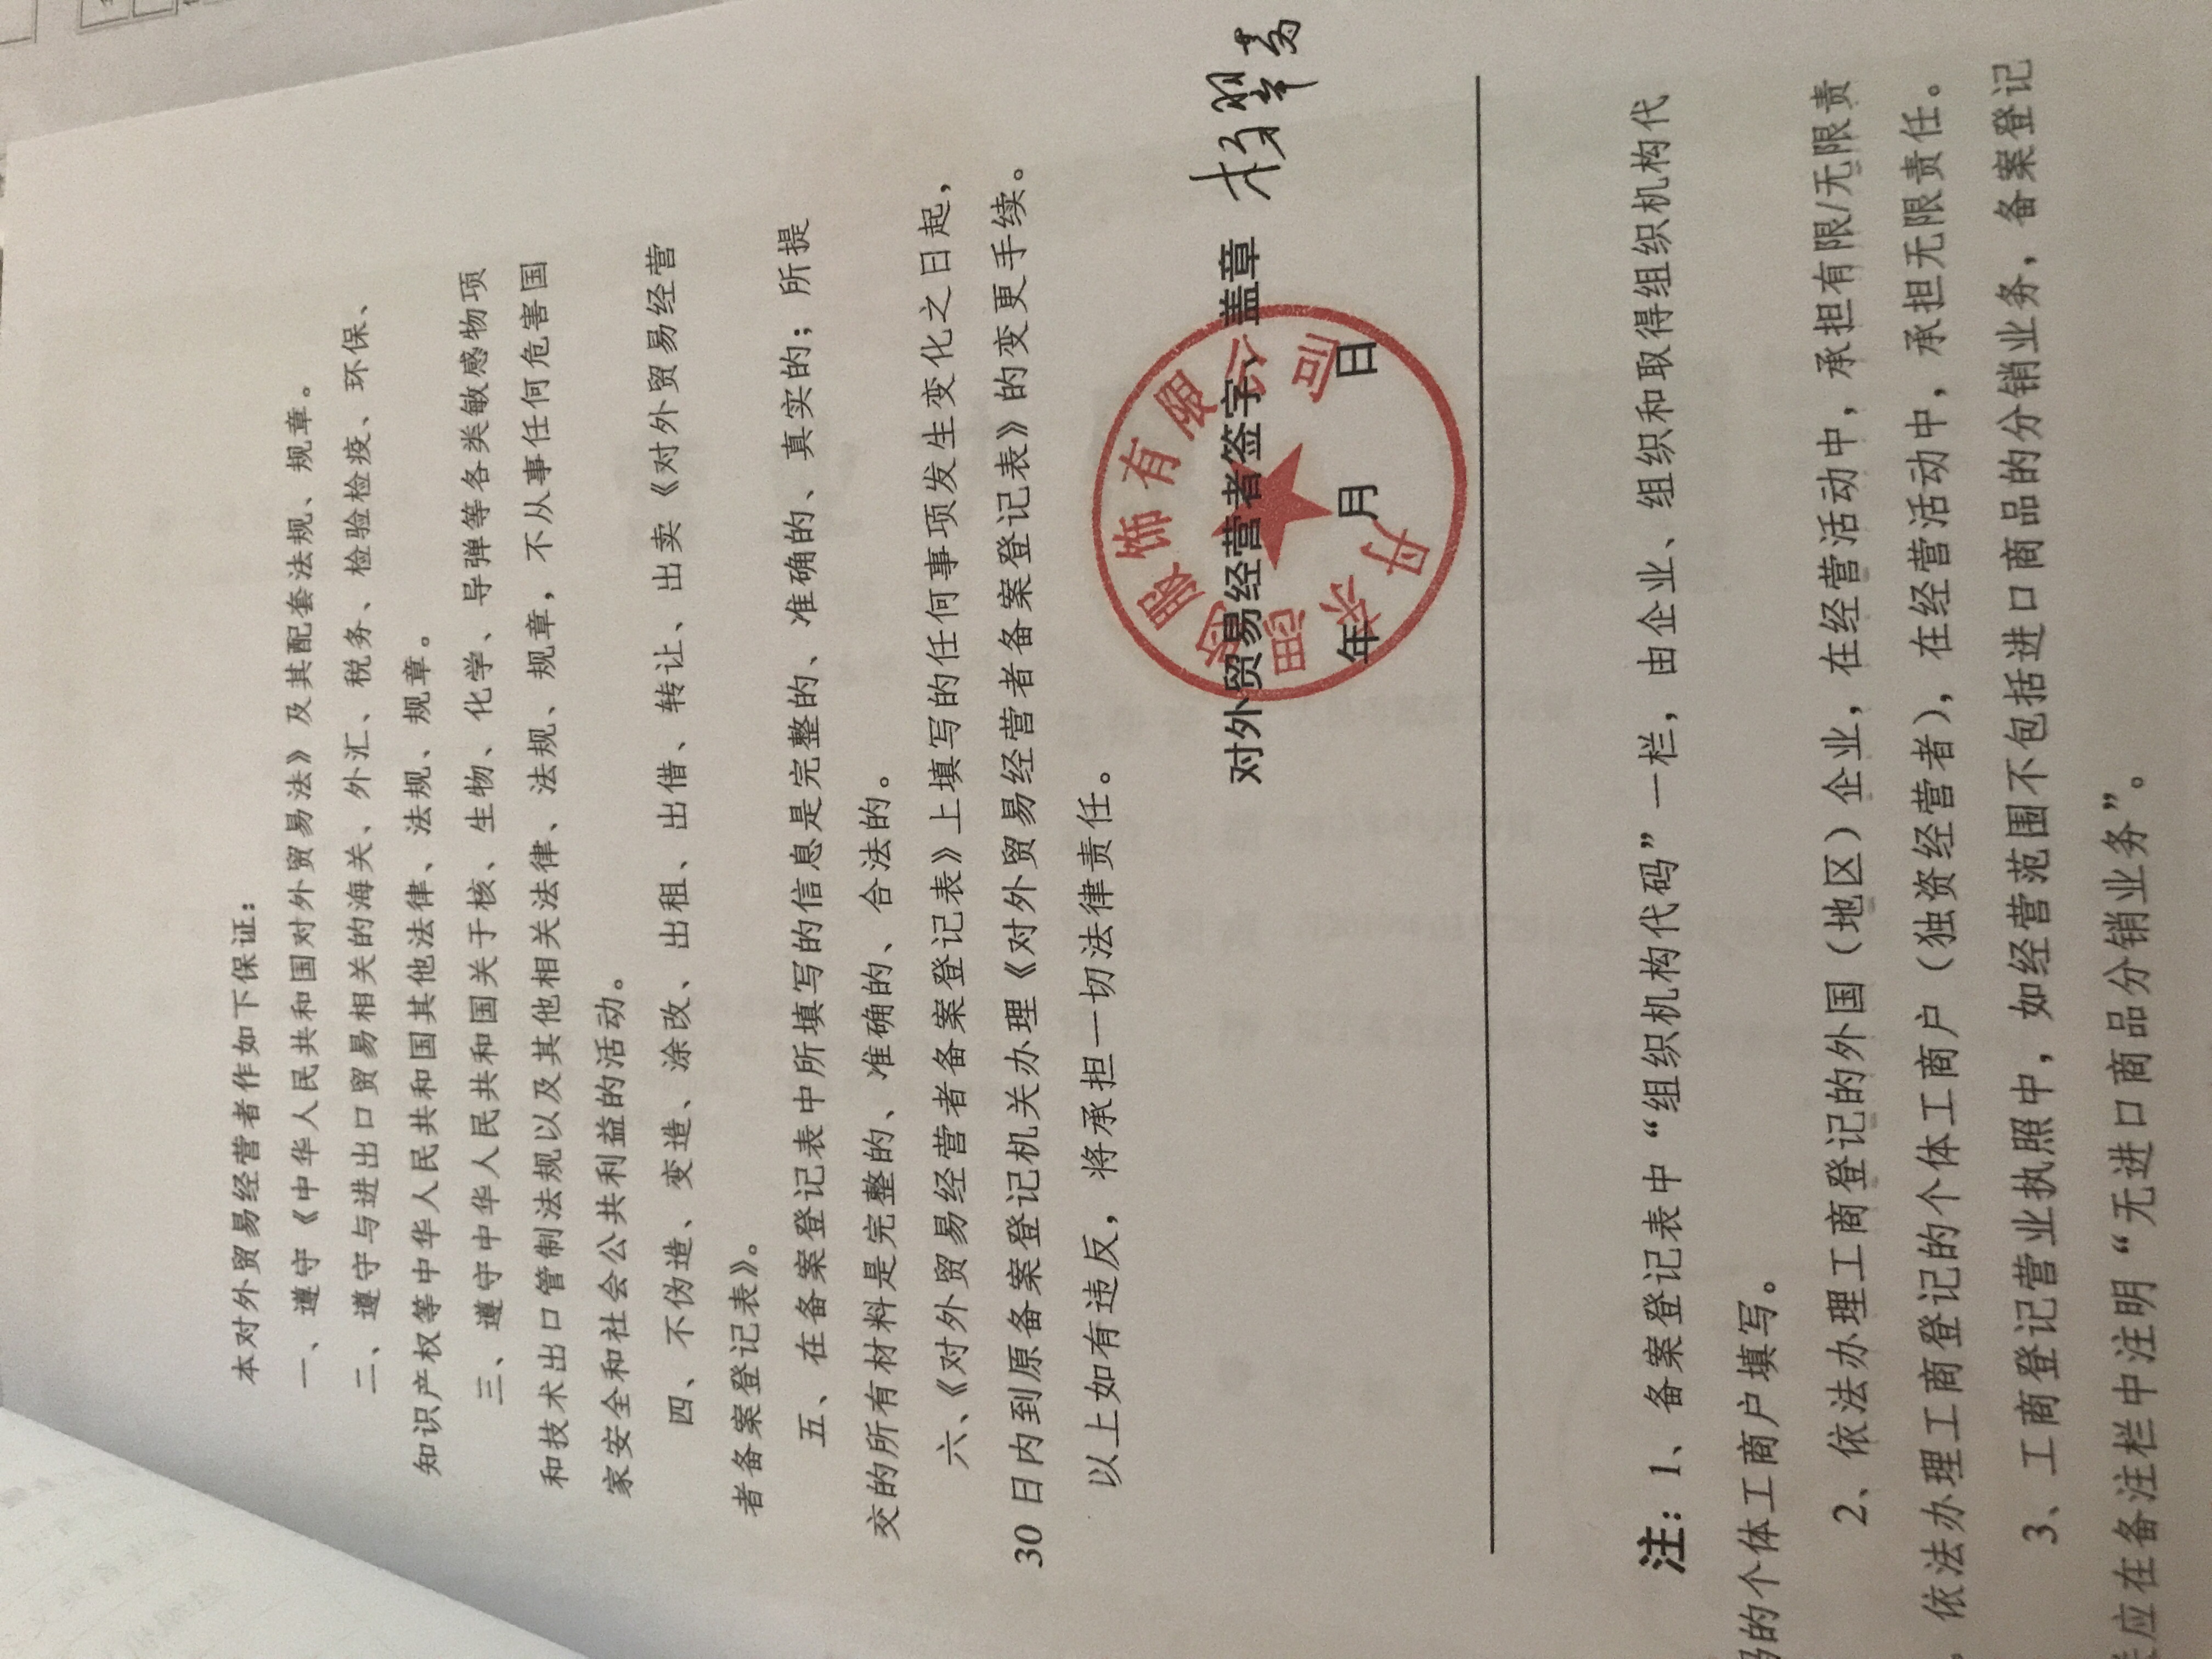 本对外贸易经营者作如下保证：
一、遵守《中华人民共和国对外贸易法》及其配套法规、规章。
二、遵守与进出口贸易相关的海关、外汇、税务、检验检疫、环保、
知识产权等中华人民共和国其他法律、法规、规章。
三、遵守中华人民共和国关于核、生物、化学、导弹等各类敏感物项
和技术出口管制法规以及其他相关法律、法规、规章，不从事任何危害国
家安全和社会公共利益的活动。
四、不伪造、变造、涂改、出租、出借、转让、出卖《对外贸易经营
者备案登记表》。
五、在备案登记表中所填写的信息是完整的、准确的、真实的；所提
交的所有材料是完整的、准确的、合法的。
六、《对外贸易经营者备案登记表》上填写的任何事项发生变化之日起，
30 日内到原备案登记机关办理《对外贸易经营者备案登记表》的变更手续。
以上如有违反，将承担一切法律责任。
对外贸易经营者签字、盖章
年 月 日
服饰有限公司
注：1、备案登记表中“组织机构代码”一栏，由企业、组织和取得组织机构代
码的个体工商户填写。
2、依法办理工商登记的外国（地区）企业，在经营活动中，承担有限/无限责
依法办理工商登记的个体工商户（独资经营者），在经营活动中，承担无限责任。
3、工商登记营业执照中，如经营范围不包括进口商品的分销业务，备案登记
应在备注栏中注明“无进口商品分销业务”。